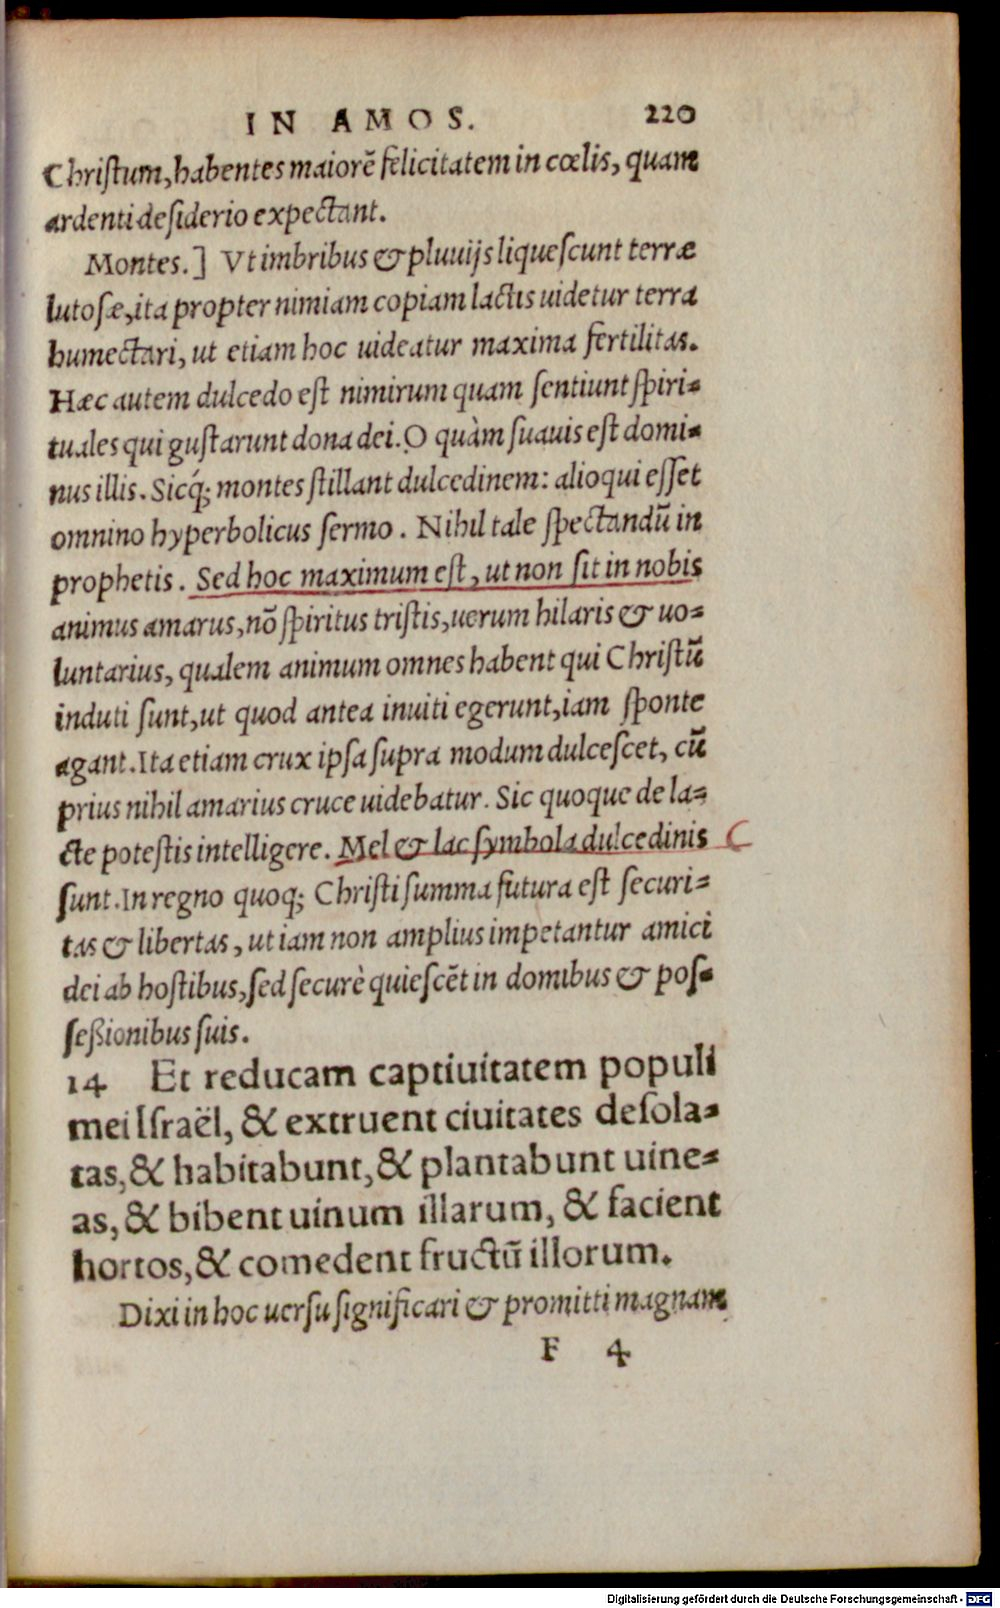 IN AMOS. 220
Christum, habentes maiorē felicitatem in cœlis, quam
ardenti desiderio expectant.
Montes.] Vt imbribus & pluuijs liquescunt terræ
lutosæ, ita propter nimiam copiam lactis uidetur terra
humectari, ut etiam hoc uideatur maxima fertilitas.
Hæc autem dulcedo est nimirum quam sentiunt spiri-
tuales qui gustarunt dona dei. O quàm suauis est domi-
nus illis. Sicq́; montes stillant dulcedinem: alioqui esset
omnino hyperbolicus sermo. Nihil tale spectandū in
prophetis. Sed hoc maximum est, ut non sit in nobis
animus amarus, nō spiritus tristis, uerum hilaris & uo-
luntarius, qualem animum omnes habent qui Christū
induti sunt, ut quod antea inuiti egerunt, iam sponte
agant. Ita etiam crux ipsa supra modum dulcescet, cū
prius nihil amarius cruce uidebatur. Sic quoque de la-
cte potestis intelligere. Mel & lac symbola dulcedinis
sunt. In regno quoq; Christi summa futura est securi-
tas & libertas, ut iam non amplius impetantur amici
dei ab hostibus, sed securè quiescēt in domibus & pos-
seßionibus suis.
14 Et reducam captiuitatem populi
mei Israël, & extruent ciuitates desola-
tas, & habitabunt, & plantabunt uine-
as, & bibent uinum illarum, & facient
hortos, & comedent fructū illorum.
Dixi in hoc uersu significari & promitti magnam
F 4
Digitalisierung gefördert durch die Deutsche Forschungsgemeinschaft - DFG